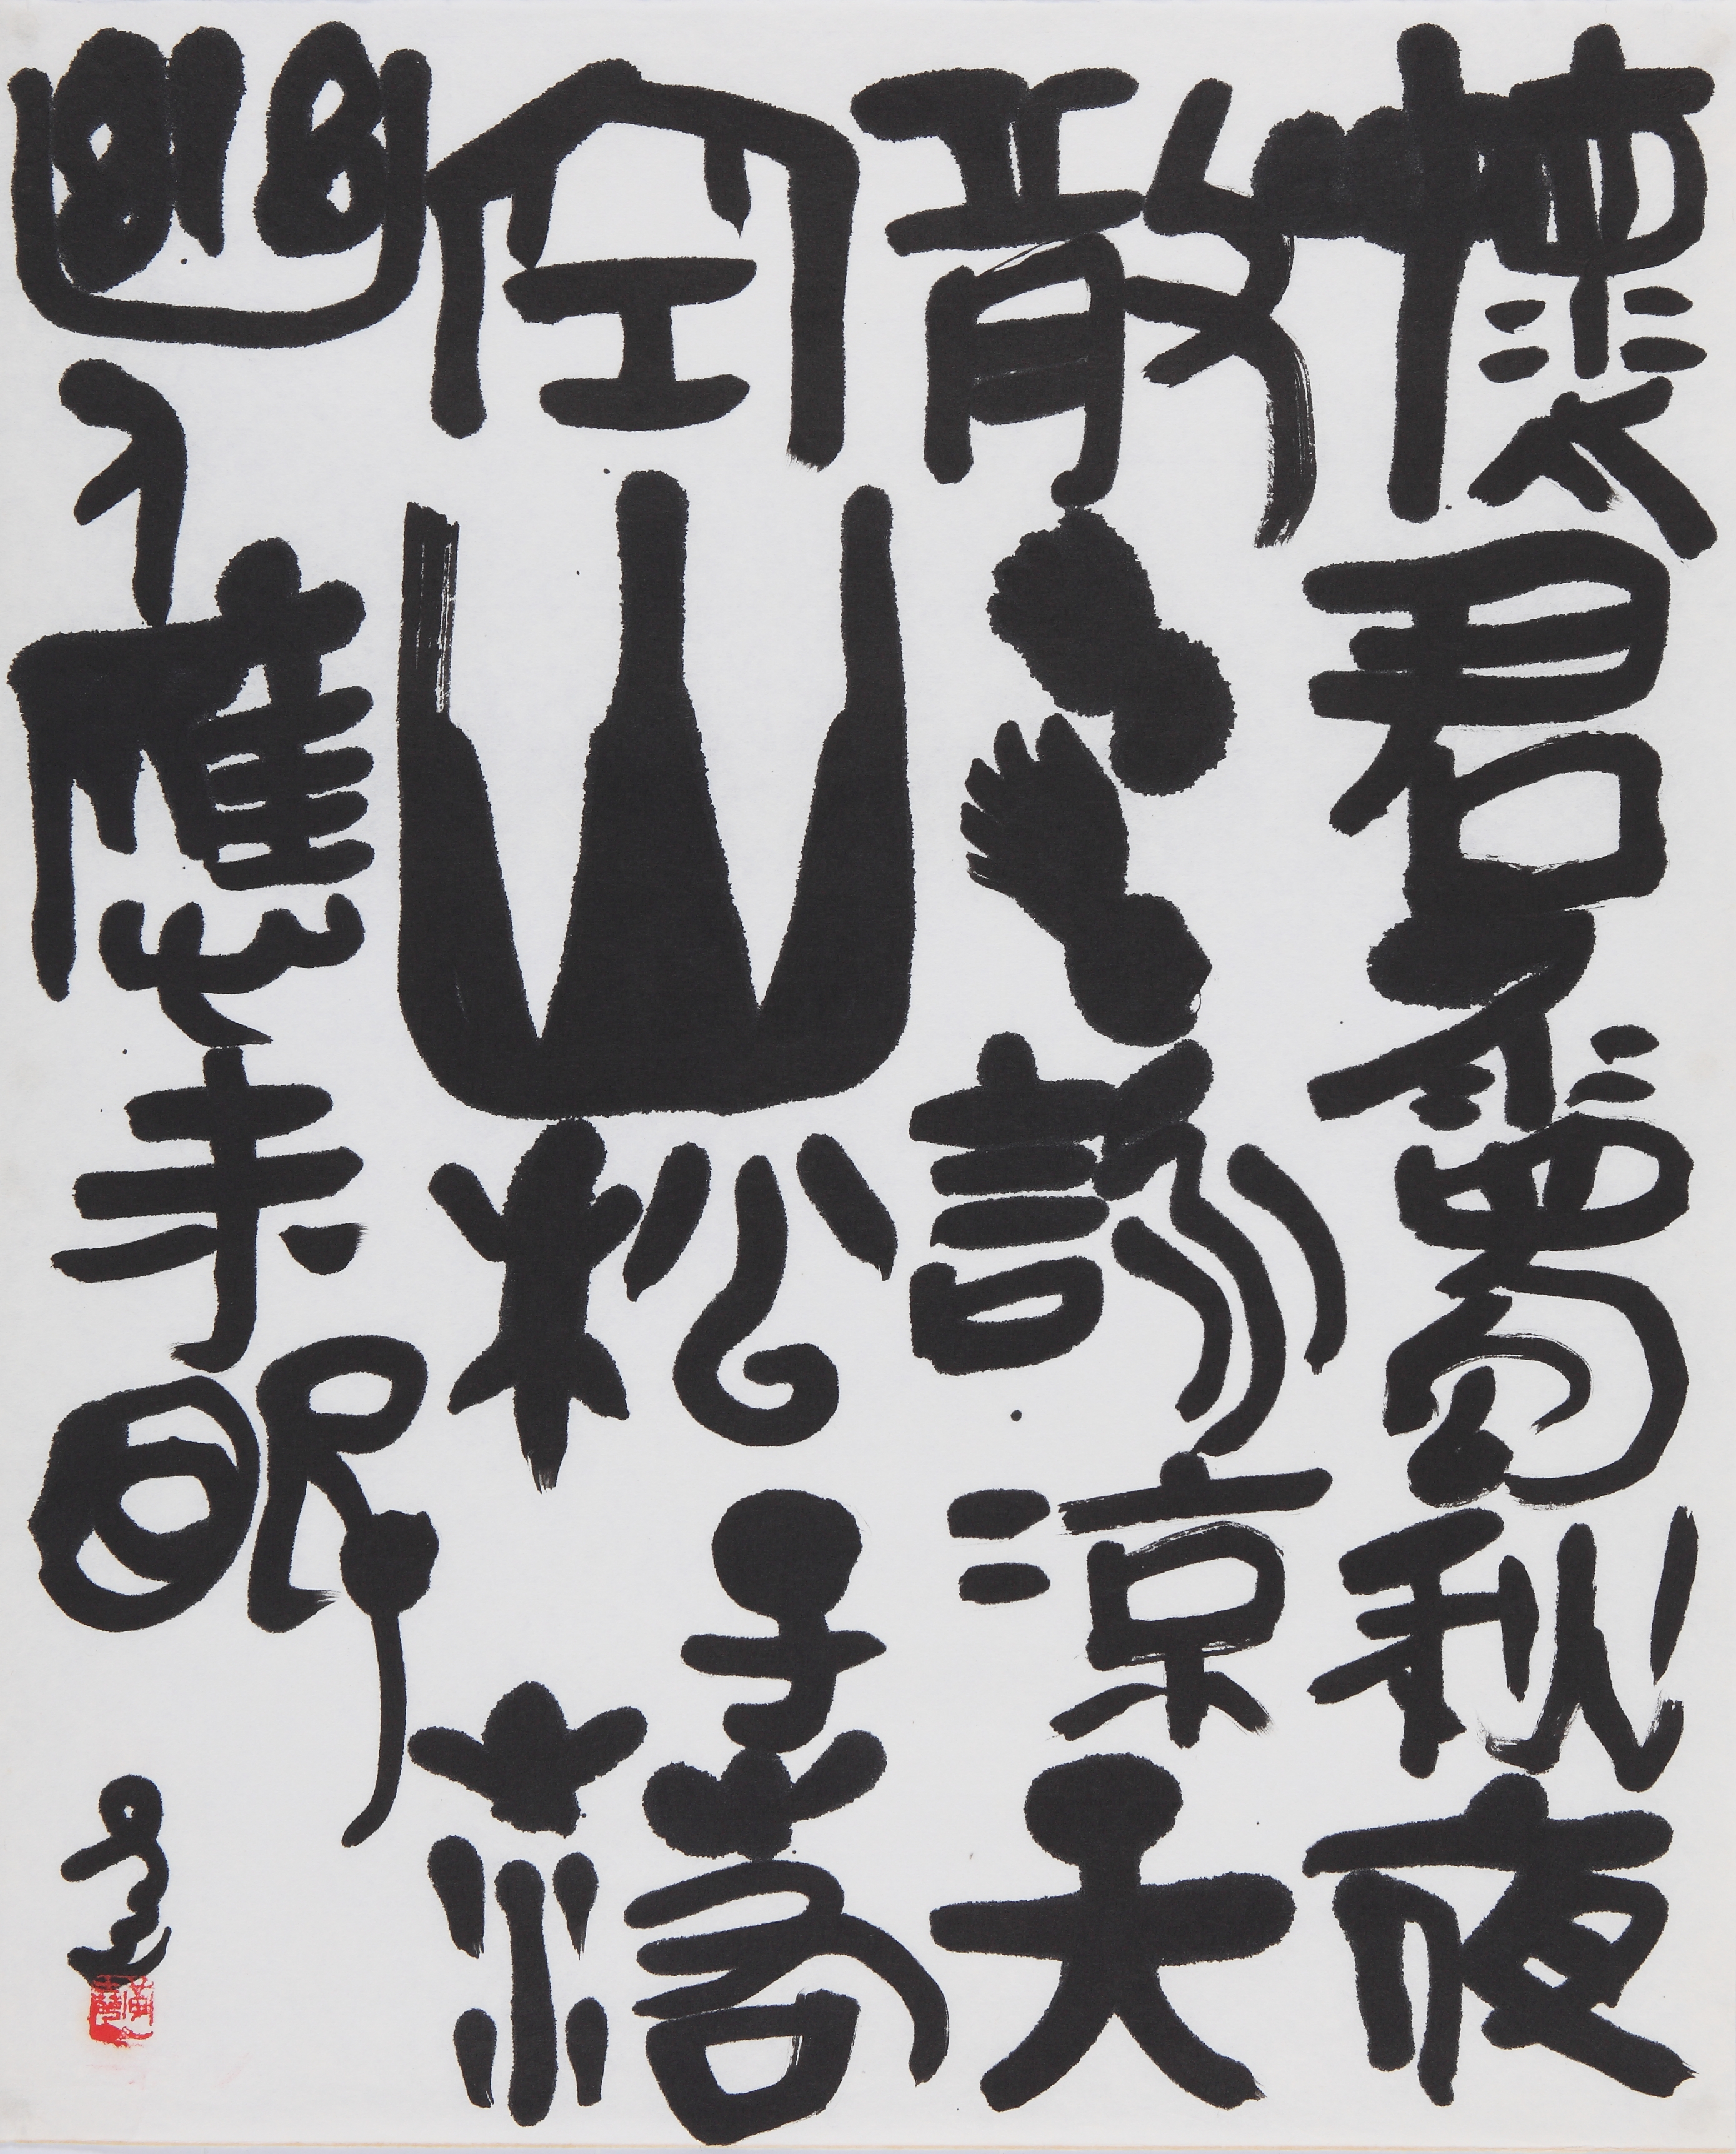 懷君屬秋夜
散步詠凉天
空山松子落
幽人應未眠